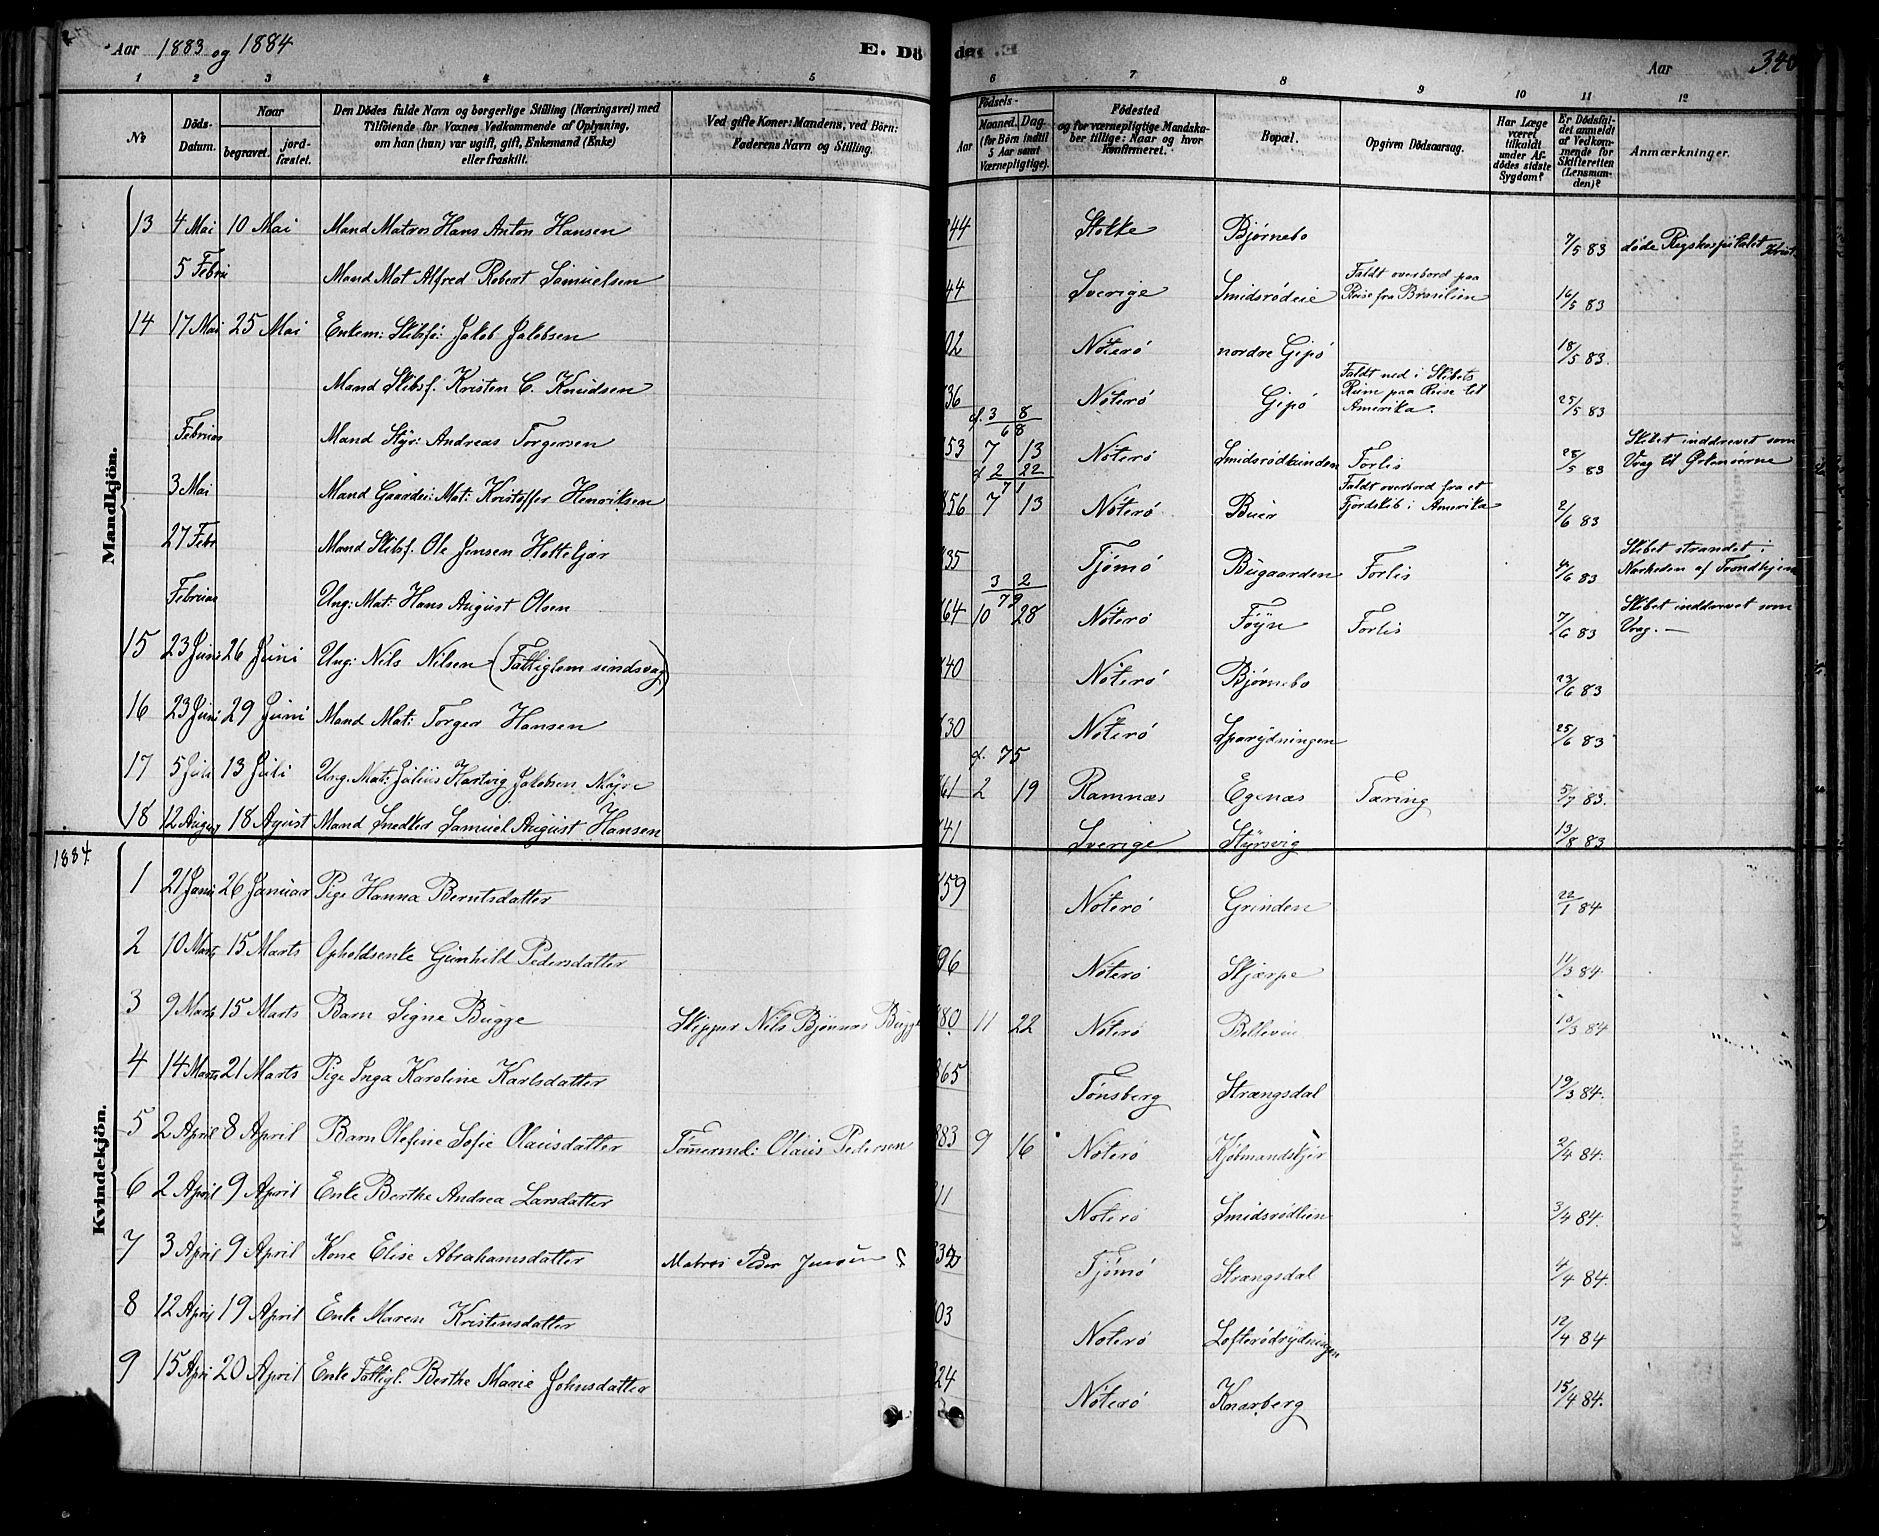 Aar 1883 og 1884 E. Dö de. Aar 340
1 2 3 4 5 6 7 8 9 10 11 12
No
Döds-Datum.
Naar
begravet.
jord-fæstet.
Den Dödes fulde Navn og borgerlige Stilling (Næringsvei) med
Tilföiende for Voxnes Vedkommende af Oplysning,
om han (hun) var ugift, gift, Enkemand (Enke)
eller fraskilt.
Ved gifte Koner: Mandens, ved Börn:
Faderens Navn og Stilling.
Födsels-
Aar
Maaned. Dag
(for Börn indtil
5 Aar samt
Værnepligtige).
Födested
og for værnepligtige Mandska-
ber tillige: Naar og hvor
konfirmeret.
Bopæl.
Opgiven Dödsaarsag.
Har Læge
været
tilkaldt
under Af-
dödes sidste
Sygdom?
Er Dödsfal-
det anmeldt
af Vedkom-
mende for
Skifteretten
(Lensman-
den)?
Anmærkninger.
Mandkjön.
13 4 Mai 10 Mai Mand Matros Hans Anton Hansen 44 Stokke Bjørnebo 7/5 83 døde Rigshospitalet Krist.
5 Febru Mand Mat Alfred Robert Samuelsen 44 Sverige Smidsrødeie Faldt overbord paa Reise fra Brasilien 16/5 83
14 17 Mai 25 Mai Enkem: Skibsfø: Jakob Jakobsen 02 Nøterø nordre Gipø 18/5 83.
Mand Skibsf. Kristen C. Knudsen 36 Nøterø Gipø Faldt ned i Skibets Rum paa Reise til Amerika. 25/5 83
d. 3 8
68
Februar Mand Styr: Andreas Torgersen 53 7 13 Nøterø Smidsrødkinden Forlis 28/5 83 Skibet inddrevet som Vrag til Orknøerne
d 2 22
71
3 Mai Mand Gaardei: Mat: Kristoffer Henriksen 56 7 13 Nøterø Buer Faldt overbord fra et Fjordskib i Amerika 2/6 83
27 Febr Mand Skibsf. Ole Jensen Holtekjær 35 Tjømø Bugaarden Forlis 4/6 83 Skibet strandet i Nærheden af Trondhjem
3 2
79
Februar Ung: Mat: Hans August Olsen 64 10 28 Nøterø Føyn Forlis 7/6 83 Skibet inddrevet som Vrag. —
15 23 Juni 26 Juni Ung: Nils Nilsen (Fattiglem sindsvag) 40 Nøterø Bjørnebo 23/6 83
16 23 Juni 29 Juni Mand Mat: Torger Hansen 30 Nøterø Sparydningen 25/6 83
d. 75
17 5 Juli 13 Juli Ung. Mat: Julius Hartvig Jakobsen Myre 61 2 19 Ramnæs Egenæs Tæring 5/7 83.
18 12 August 18 August Mand Snedker Samuel August Hansen 41 Sverige Styrsvig 13/8 83
1884
Kvindekjön.
1 21 Janu 26 Januar Pige Hanna Berntsdatter 59 Nøterø Grinden 22/1 84
2 10 Marts 15 Marts Opholdsenke Gunhild Pedersdatter 96 Nøterø Skjærpe 11/3 84.
3 9 Marts 15 Marts Barn Signe Bugge Skipper Nils Bjønnes Bugge 80 11 22 Nøterø Bellevue 10/3 84
4 14 Marts 21 Marts Pige Inga Karoline Karlsdatter 865 Tønsberg Strængsdal 19/3 84.
5 2 April 8 April Barn Olefine Sofie Olausdatter Tømermd: Olaus Pedersen 883 9 16 Nøterø Kjøbmandskjær 2/4 84.
6 2 April 9 April Enke Berthe Andrea Larsdatter 11 Nøterø Smidsrødlien 3/4 84.
7 3 April 9 April Kone Elise Abrahamsdatter Matros Peder Jensen 32 Tjømø Strængsdal 4/4 84.
8 12 April 19 April Enke Maren Kristensdatter 03 Nøterø Lofterødrydningen 12/4 84
9 15 Apri 20 April Enke Fattigl. Berthe Marie Johnsdatter 24 Nøterø Knarberg 15/4 84.